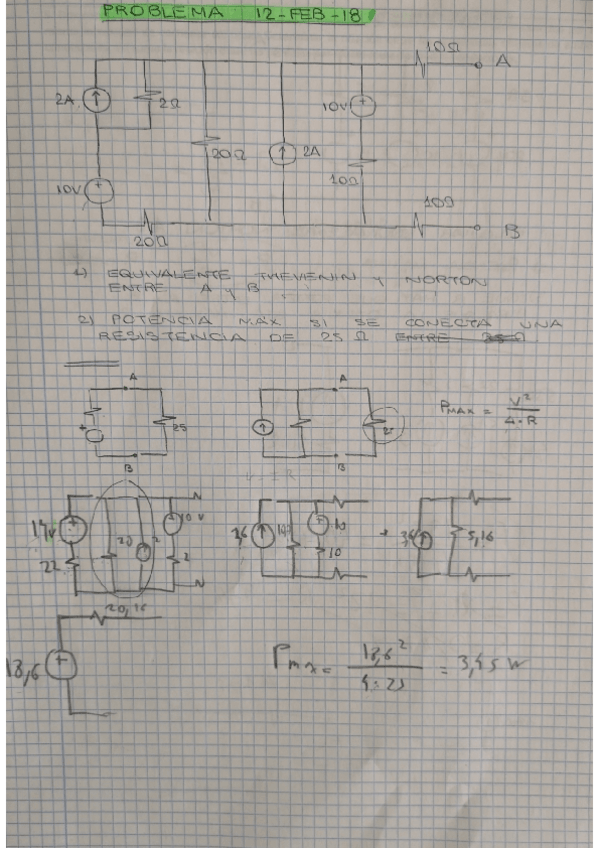 PROBLEMA 12-FEB-18
10Ω
A
2A
2Ω
10V
20Ω
2A
10Ω
10V
10Ω
20Ω
B
1) EQUIVALENTE THEVENIN Y NORTON
ENTRE A y B
2) POTENCIA MAX SI SE CONECTA UNA
RESISTENCIA DE 25 Ω ENTRE
A
A
25
25
Pmax = V²/4·R
B
B
14v
20
2
10 v
22
2
36
10
10
5,16
20,16
18,6
Pmax = 18,6²/4·25 = 3,45 W